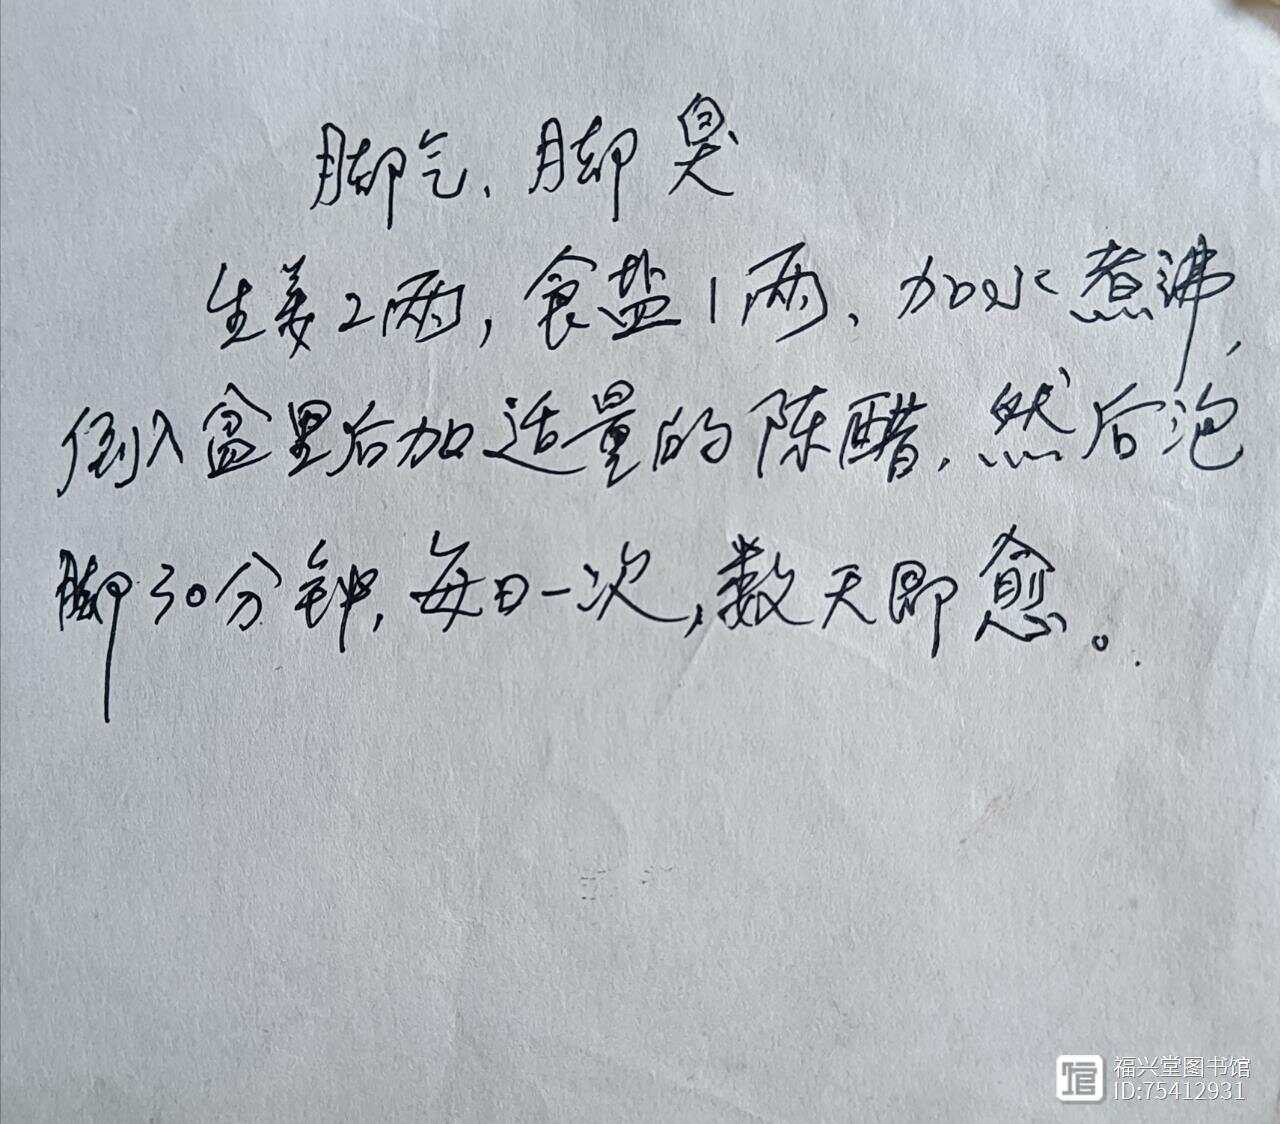 脚气、脚臭
生姜2两，食盐1两、加水煮沸，
倒入盆里后加适量的陈醋，然后泡
脚30分钟，每日一次，数天即愈。
福兴堂图书馆
ID:75412931